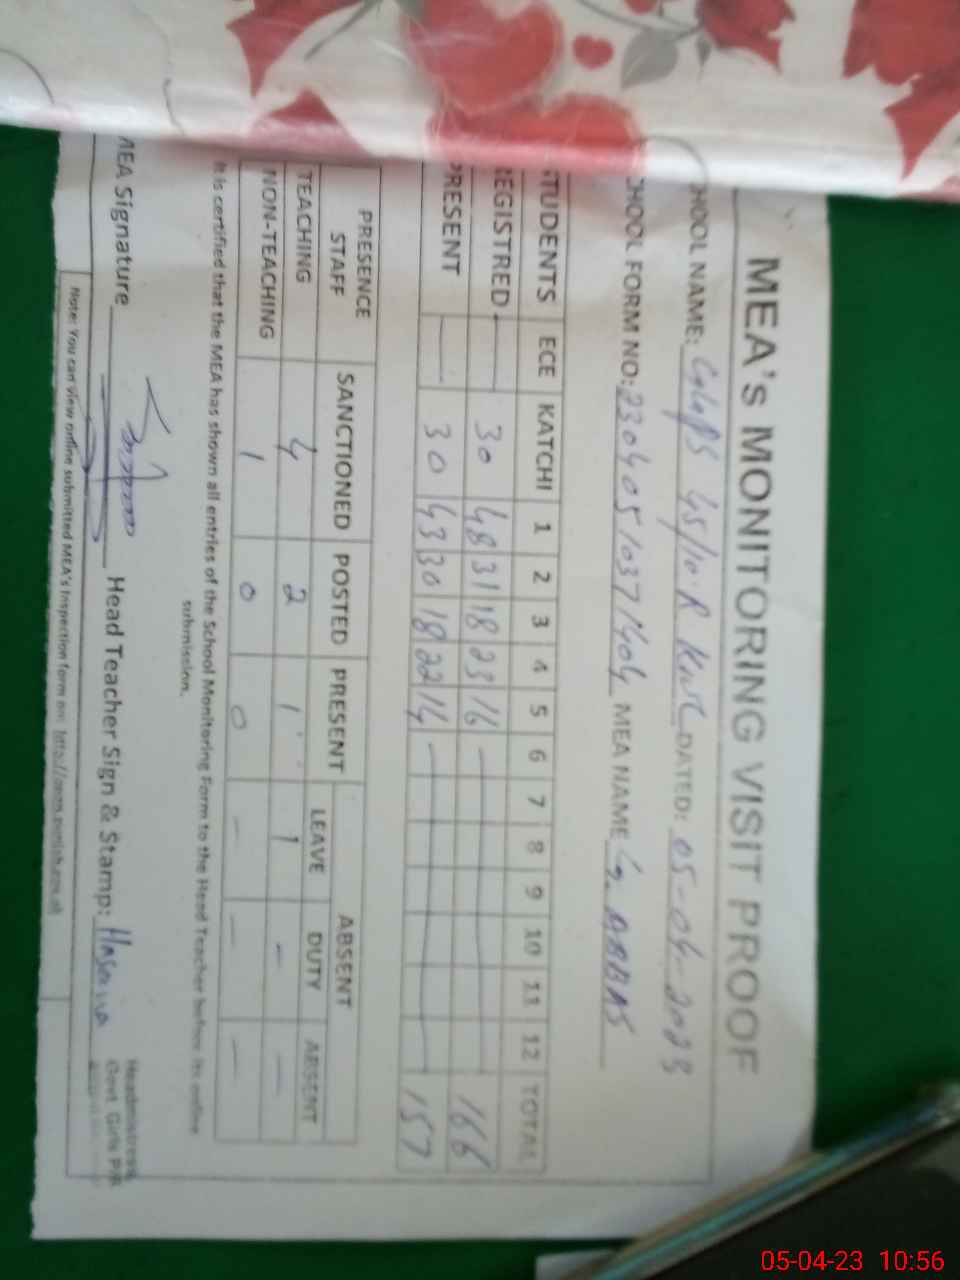 MEA's MONITORING VISIT PROOF
CHOOL NAME: GGPS 45/10-R KWL DATED: 05-04-2023
CHOOL FORM NO: 23040510371404 MEA NAME G. ABBAS
STUDENTS ECE KATCHI 1 2 3 4 5 6 7 8 9 10 11 12 TOTAL
REGISTRED - 30 48 31 18 23 16 - 166
PRESENT - 30 43 30 18 22 14 - 157
PRESENCE STAFF SANCTIONED POSTED PRESENT ABSENT
LEAVE DUTY ABSENT
TEACHING 4 2 1 1 - -
NON-TEACHING 1 0 0 - - -
It is certified that the MEA has shown all entries of the School Monitoring Form to the Head Teacher before its online
submission.
MEA Signature Head Teacher Sign & Stamp:
Headmistress
Govt. Girls P/S
Note: You can view online submitted MEA's Inspection form on:
05-04-23 10:56